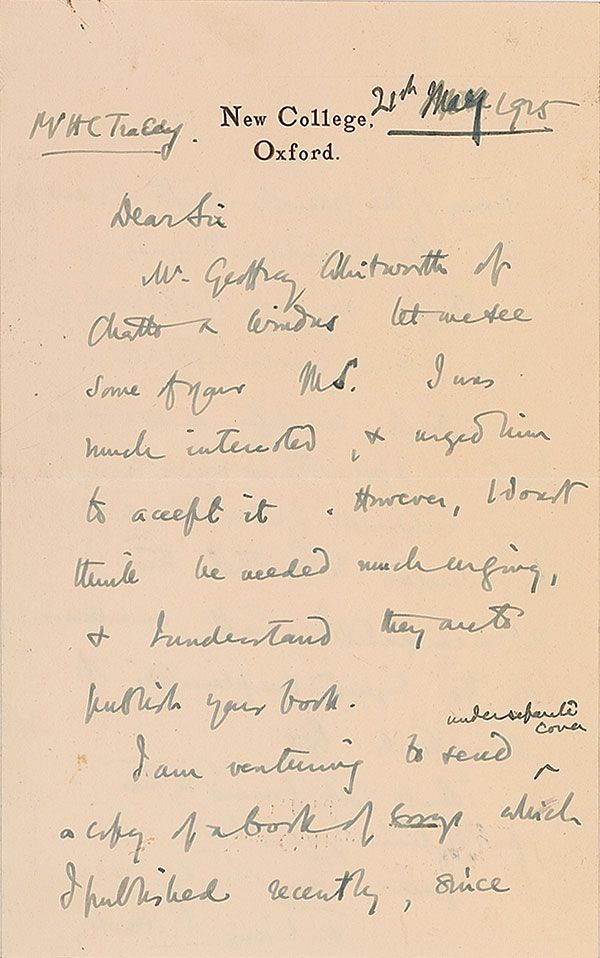 Mr H C Tracey.
New College, 21th May 1925
Oxford.
Dear Sir
Mr. Geoffrey Whitworth of
Chatto & Windus let me see
some of your MS. I was
much interested, & urged him
to accept it. However, I don't
think he needed much urging,
& I understand they are to
publish your book.
under separate
cover
I am venturing to send ^
a copy of a book of which
I published recently, since